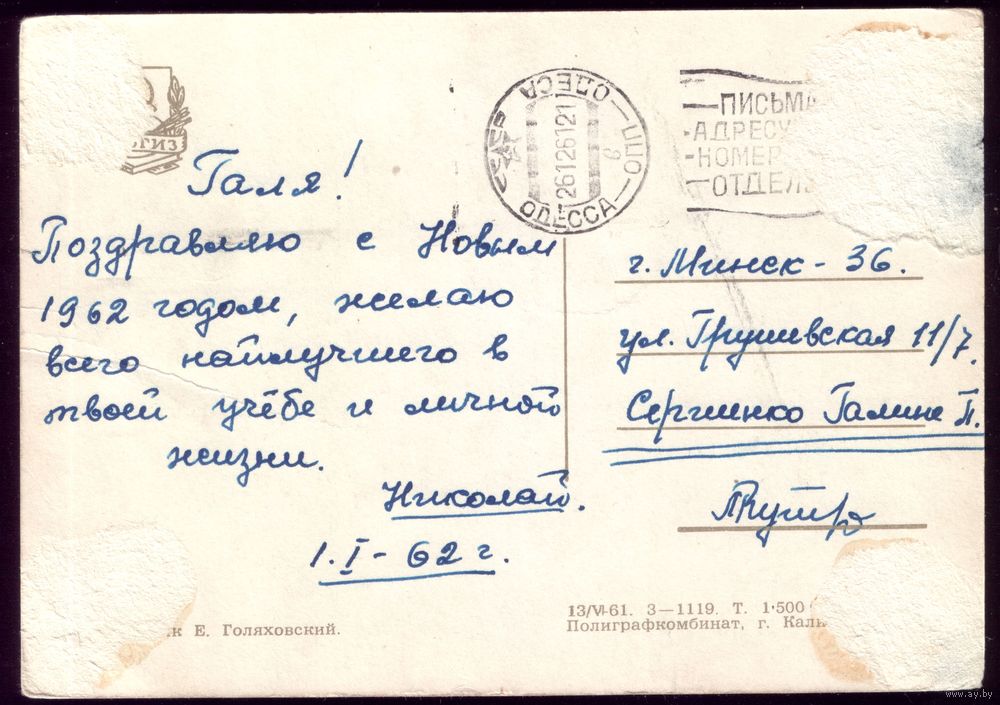 ОГИЗ
Галя!
Поздравляю с Новым
1962 годом, желаю
всего наилучшего в
твоей учёбе и личной
жизни.
Николай.
1.I-62 г.
к Е. Голяховский.
ОДЕСА
ППО
26126121
ОДЕССА
СССР
ПИСЬМА
АДРЕСУ
НОМЕР
ОТДЕЛ
г. Минск - 36.
ул. Грушевская 11/7.
Сергиенко Галине П.
13/VI-61. З—1119. Т. 1·500
Полиграфкомбинат, г. Кали
www.ay.by